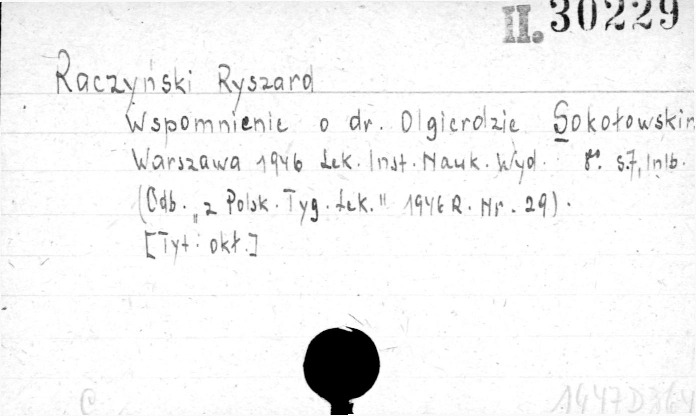 II. 30229
Raczyński Ryszard
Wspomnienie o dr. Olgierdzie Sokołowskim
Warszawa 1946 Lek. Inst. Nauk. Wyd. 8°. s. 7, 1 nlb.
(Odb. „z Polsk. Tyg. Lek." 1946 R. Nr. 29).
[Tyt: okł.]
C 1947 D 364